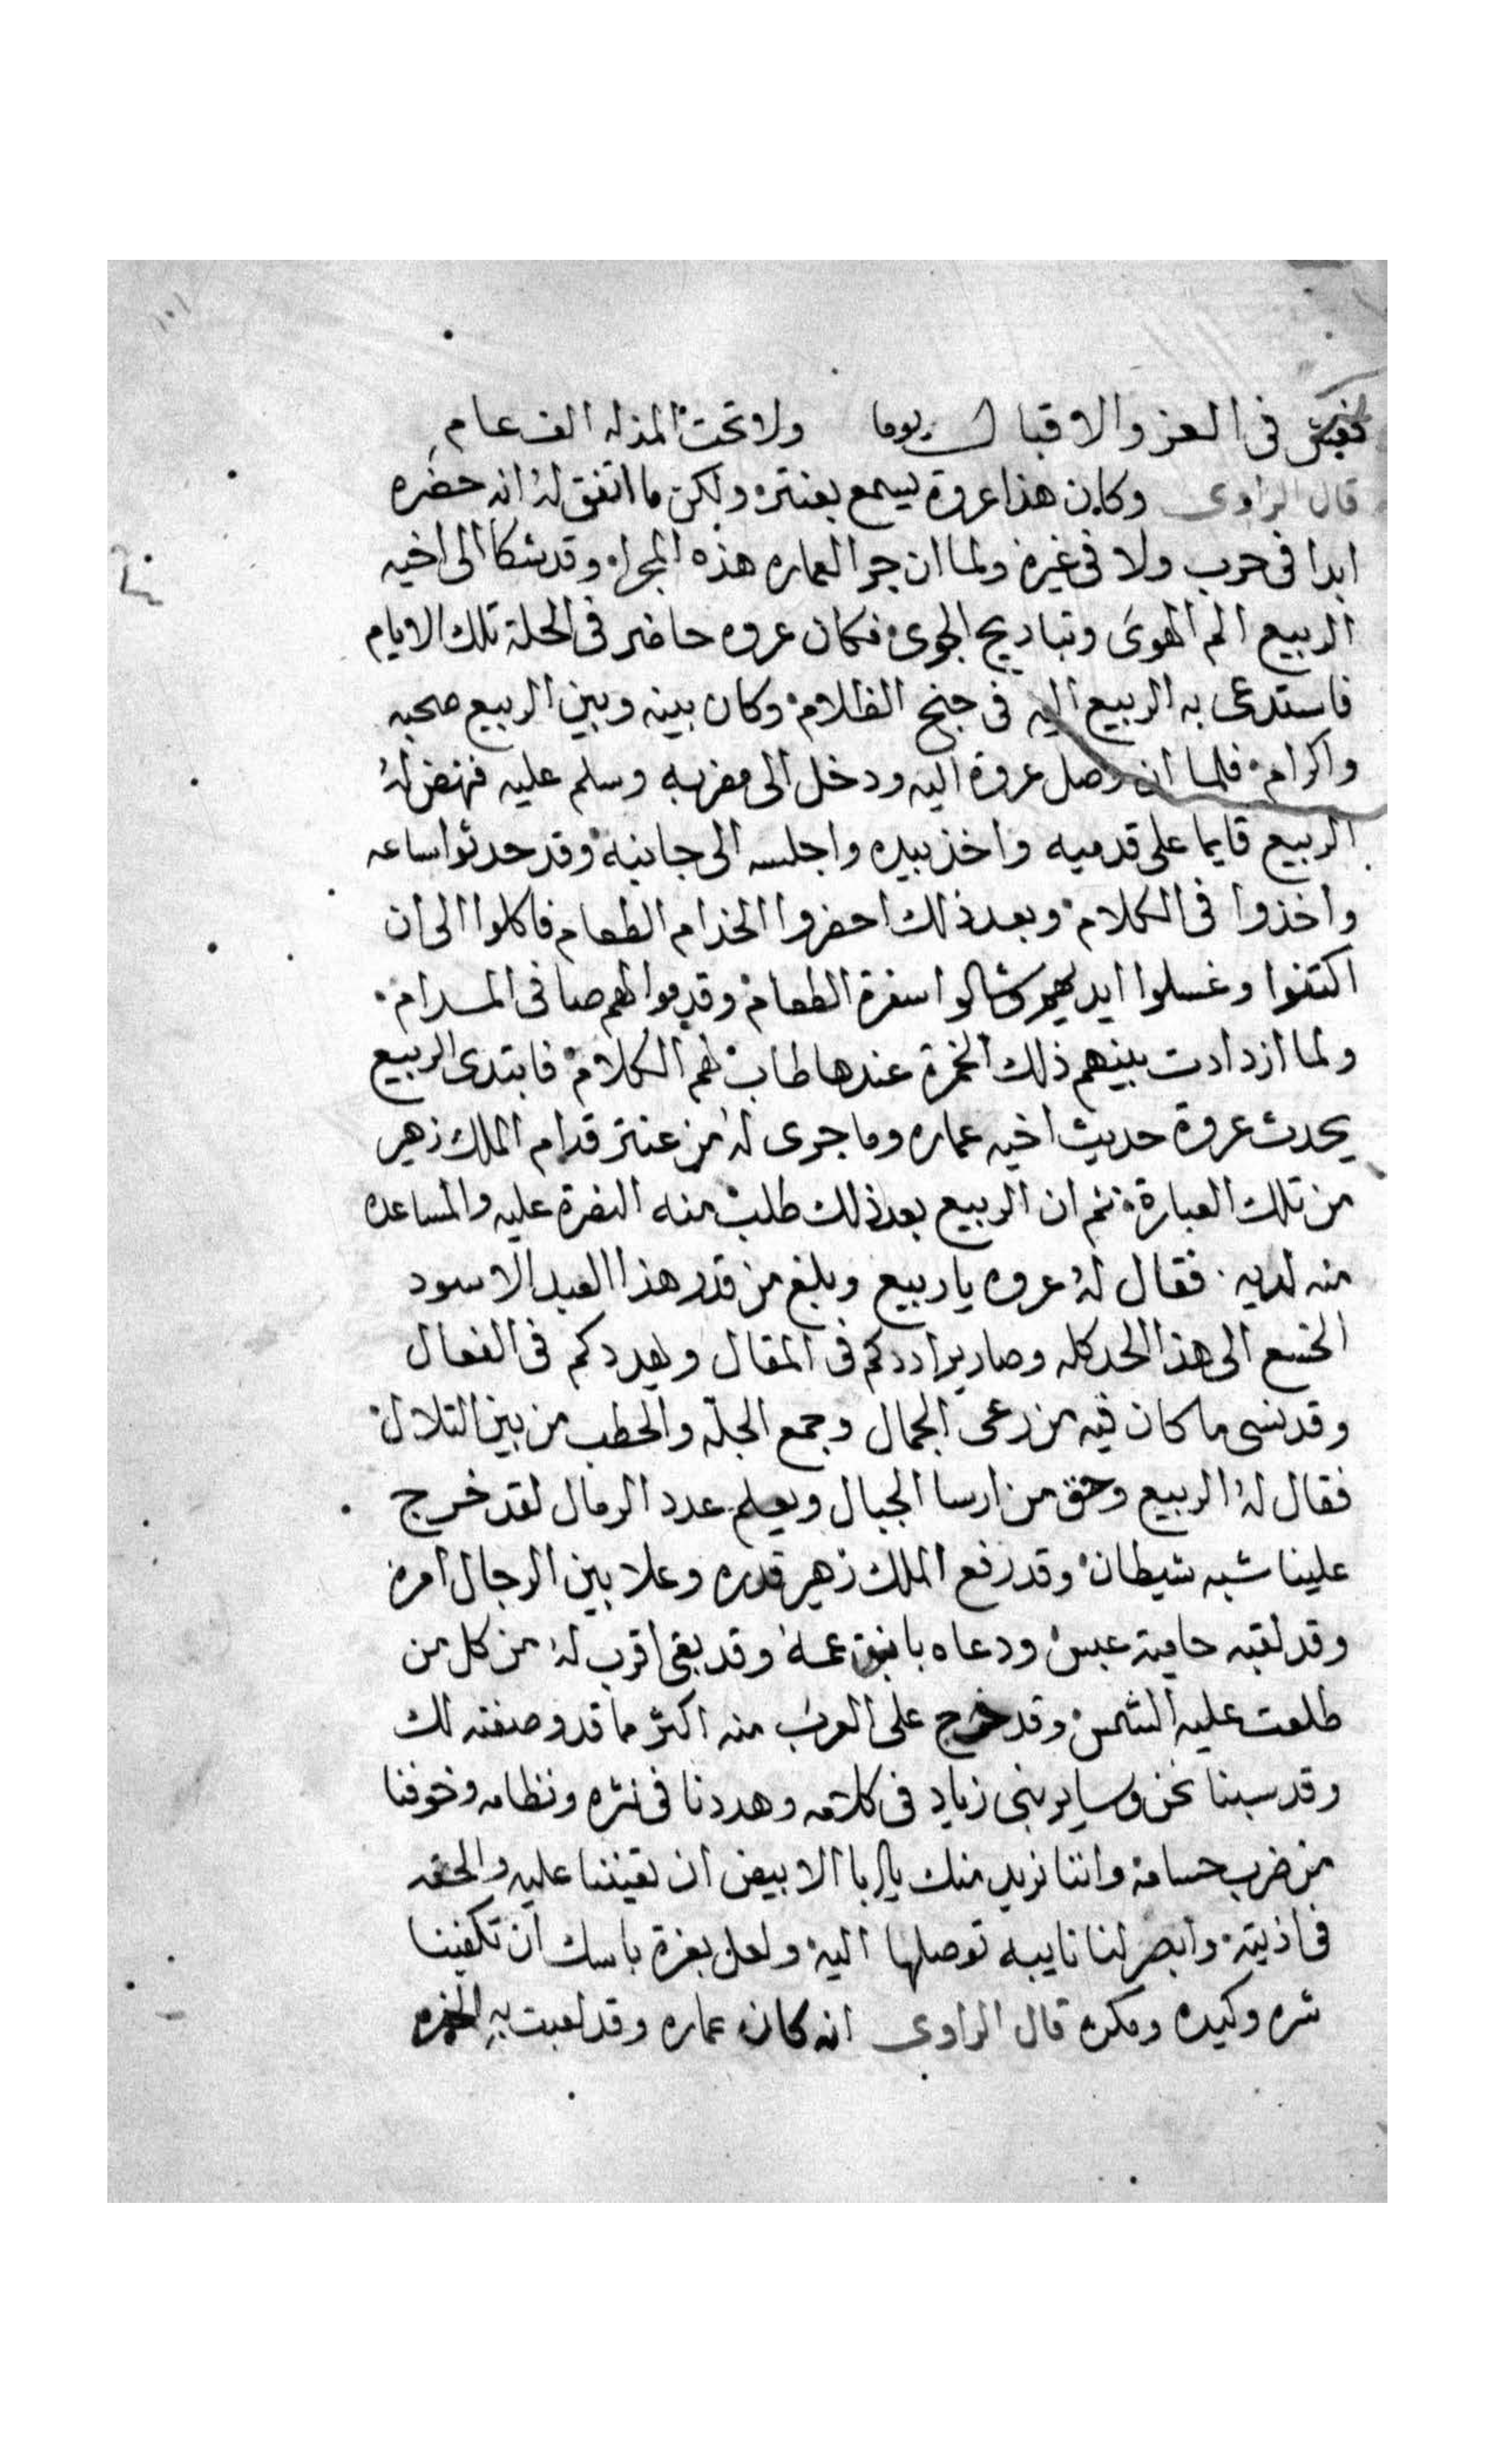 فعيش فى العز والاقبال يوما ولا تحت المذله الف عام
قال الراوى وكان هذا عروة يسمع بعنتره ولكن ما اتفق له انه حضره
ابدا فى حرب ولا فى غيره ولما ان جرا لعماره هذه المجراه وقد شكا الى اخيه
الربيع الم الهوى وتباريح الجوى فكان عروه حاضر فى الحلة تلك الايام
فاستدعى به الربيع اليه فى جنح الظلام وكان بينه وبين الربيع صحبه
واكرام فلما ان وصل عروة اليه ودخل الى مضربه وسلم عليه فنهض له
الربيع قايما على قدميه واخذ بيده واجلسه الى جانبه وقد حدثوا ساعه
واخذوا فى الكلام وبعد ذلك احضروا الخدام الطعام فاكلوا الى ان
اكتفوا وغسلوا ايديهم وشالوا سفرة الطعام وقدموا لهم صافى المدام
ولما ازدادت بينهم ذلك الخمرة عندها طاب لهم الكلام فابتدى الربيع
يحدث عروة حديث اخيه عماره وما جرى له من عنتر قدام الملك زهير
من تلك العبارة ثم ان الربيع بعد ذلك طلب منه النصرة عليه والمساعده
منه لديه فقال له عروه ياربيع وبلغ من قدر هذا العبد الاسود
الى هذا الحد كله وصار يراددكم فى المقال ويهددكم فى الفعال
وقد نسى ما كان فيه من رعى الجمال وجمع الجلّه والحطب من بين التلال
فقال له الربيع وحق من ارسا الجبال ويعلم عدد الرمال لقد خرج
علينا شبه شيطان وقد رفع الملك زهير قدره وعلا بين الرجال امره
وقد لقبه حامية عبس ودعاه بابن عمه وقد بقى اقرب له من كل من
طلعت عليه الشمس وقد خرج على العرب منه اكثر ما قد وصفته لك
وقد سبنا نحن وساير بنى زياد فى كلامه وهددنا فى نثره ونظامه وخوفنا
من ضرب حسامه واننا نريد منك يا ابا الابيض ان تعيننا عليه والحقه
فى اذيته وابصر لنا نايبه توصلها اليه ولعل بعزة باسك ان تكفينا
شره وكيده ومكره قال الراوى انه كان عماره وقد لعبت به الخمره